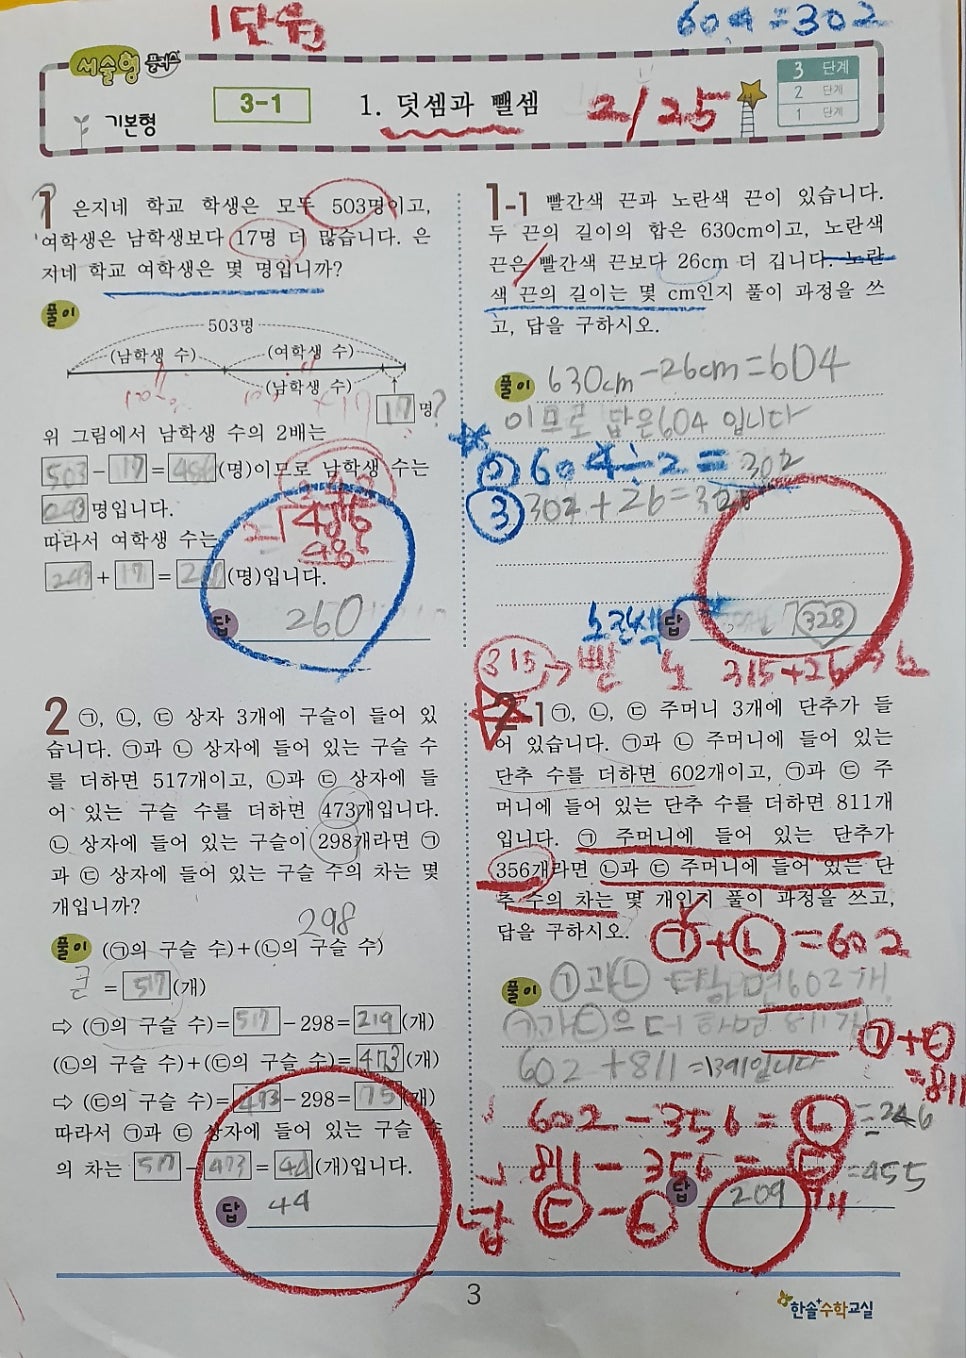 1단원
604 = 302
서술형 플러스
기본형
3-1
1. 덧셈과 뺄셈
2/25
3 단계
2 단계
1 단계
1 은지네 학교 학생은 모두 503명이고,
여학생은 남학생보다 17명 더 많습니다. 은
지네 학교 여학생은 몇 명입니까?
풀이
503명
(남학생 수) (여학생 수)
(남학생 수)
17 명?
위 그림에서 남학생 수의 2배는
503 - 17 = 486 (명)이므로 남학생 수는
243 명입니다.
2 486
따라서 여학생 수는
243 + 17 = 260 (명)입니다.
답 260
1-1 빨간색 끈과 노란색 끈이 있습니다.
두 끈의 길이의 합은 630cm이고, 노란색
끈은 빨간색 끈보다 26cm 더 깁니다. 노란
색 끈의 길이는 몇 cm인지 풀이 과정을 쓰
고, 답을 구하시오.
풀이 630cm-26cm=604
이므로 답은604 입니다
② 604÷2=302
③ 302+26=328
노란색 답 328
315→빨 노 315+26
2 ㉠, ㉡, ㉢ 상자 3개에 구슬이 들어 있
습니다. ㉠과 ㉡ 상자에 들어 있는 구슬 수
를 더하면 517개이고, ㉡과 ㉢ 상자에 들
어 있는 구슬 수를 더하면 473개입니다.
㉡ 상자에 들어 있는 구슬이 298개라면 ㉠
과 ㉢ 상자에 들어 있는 구슬 수의 차는 몇
개입니까?
298
풀이 (㉠의 구슬 수)+(㉡의 구슬 수)
= 517 (개)
⇨ (㉠의 구슬 수)= 517 -298= 219 (개)
(㉡의 구슬 수)+(㉢의 구슬 수)= 473 (개)
⇨ (㉢의 구슬 수)= 473 -298= 175 (개)
따라서 ㉠과 ㉢ 상자에 들어 있는 구슬 수
의 차는 517 - 473 = 44 (개)입니다.
답 44
2-1 ㉠, ㉡, ㉢ 주머니 3개에 단추가 들
어 있습니다. ㉠과 ㉡ 주머니에 들어 있는
단추 수를 더하면 602개이고, ㉠과 ㉢ 주
머니에 들어 있는 단추 수를 더하면 811개
입니다. ㉠ 주머니에 들어 있는 단추가
356개라면 ㉡과 ㉢ 주머니에 들어 있는 단
추 수의 차는 몇 개인지 풀이 과정을 쓰고,
답을 구하시오.
㉠+㉡=602
풀이 ㉠과㉡ 더하면602개
㉠과㉢의 더하면 811개
㉠+㉢
=811
602+811=1391입니다
602-356=㉡=246
811-356=㉢=455
답 ㉢-㉡ 답 209 개
3
한솔수학교실